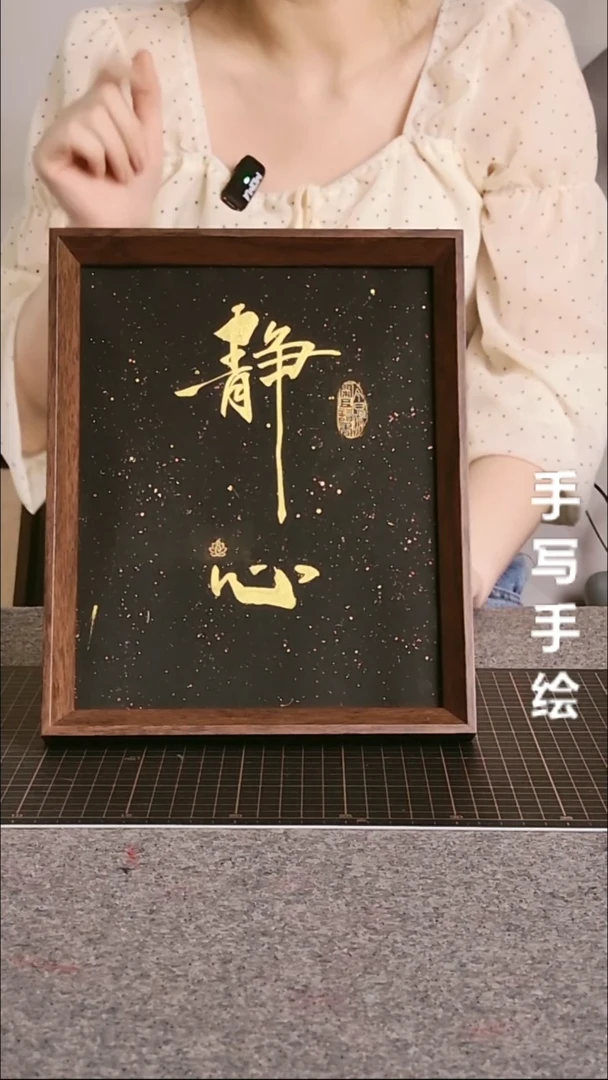 静
心
手写手绘